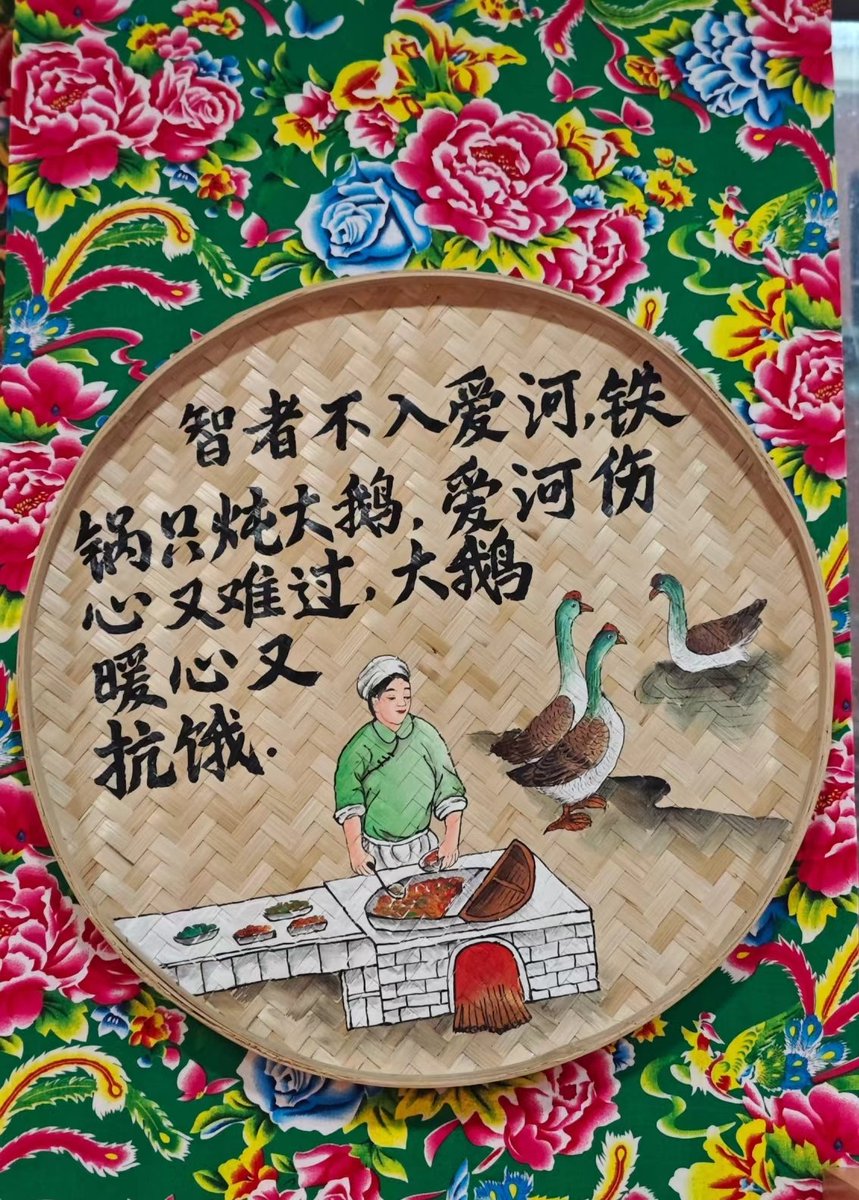 智者不入爱河,铁
锅只炖大鹅,爱河伤
心又难过,大鹅
暖心又
抗饿.